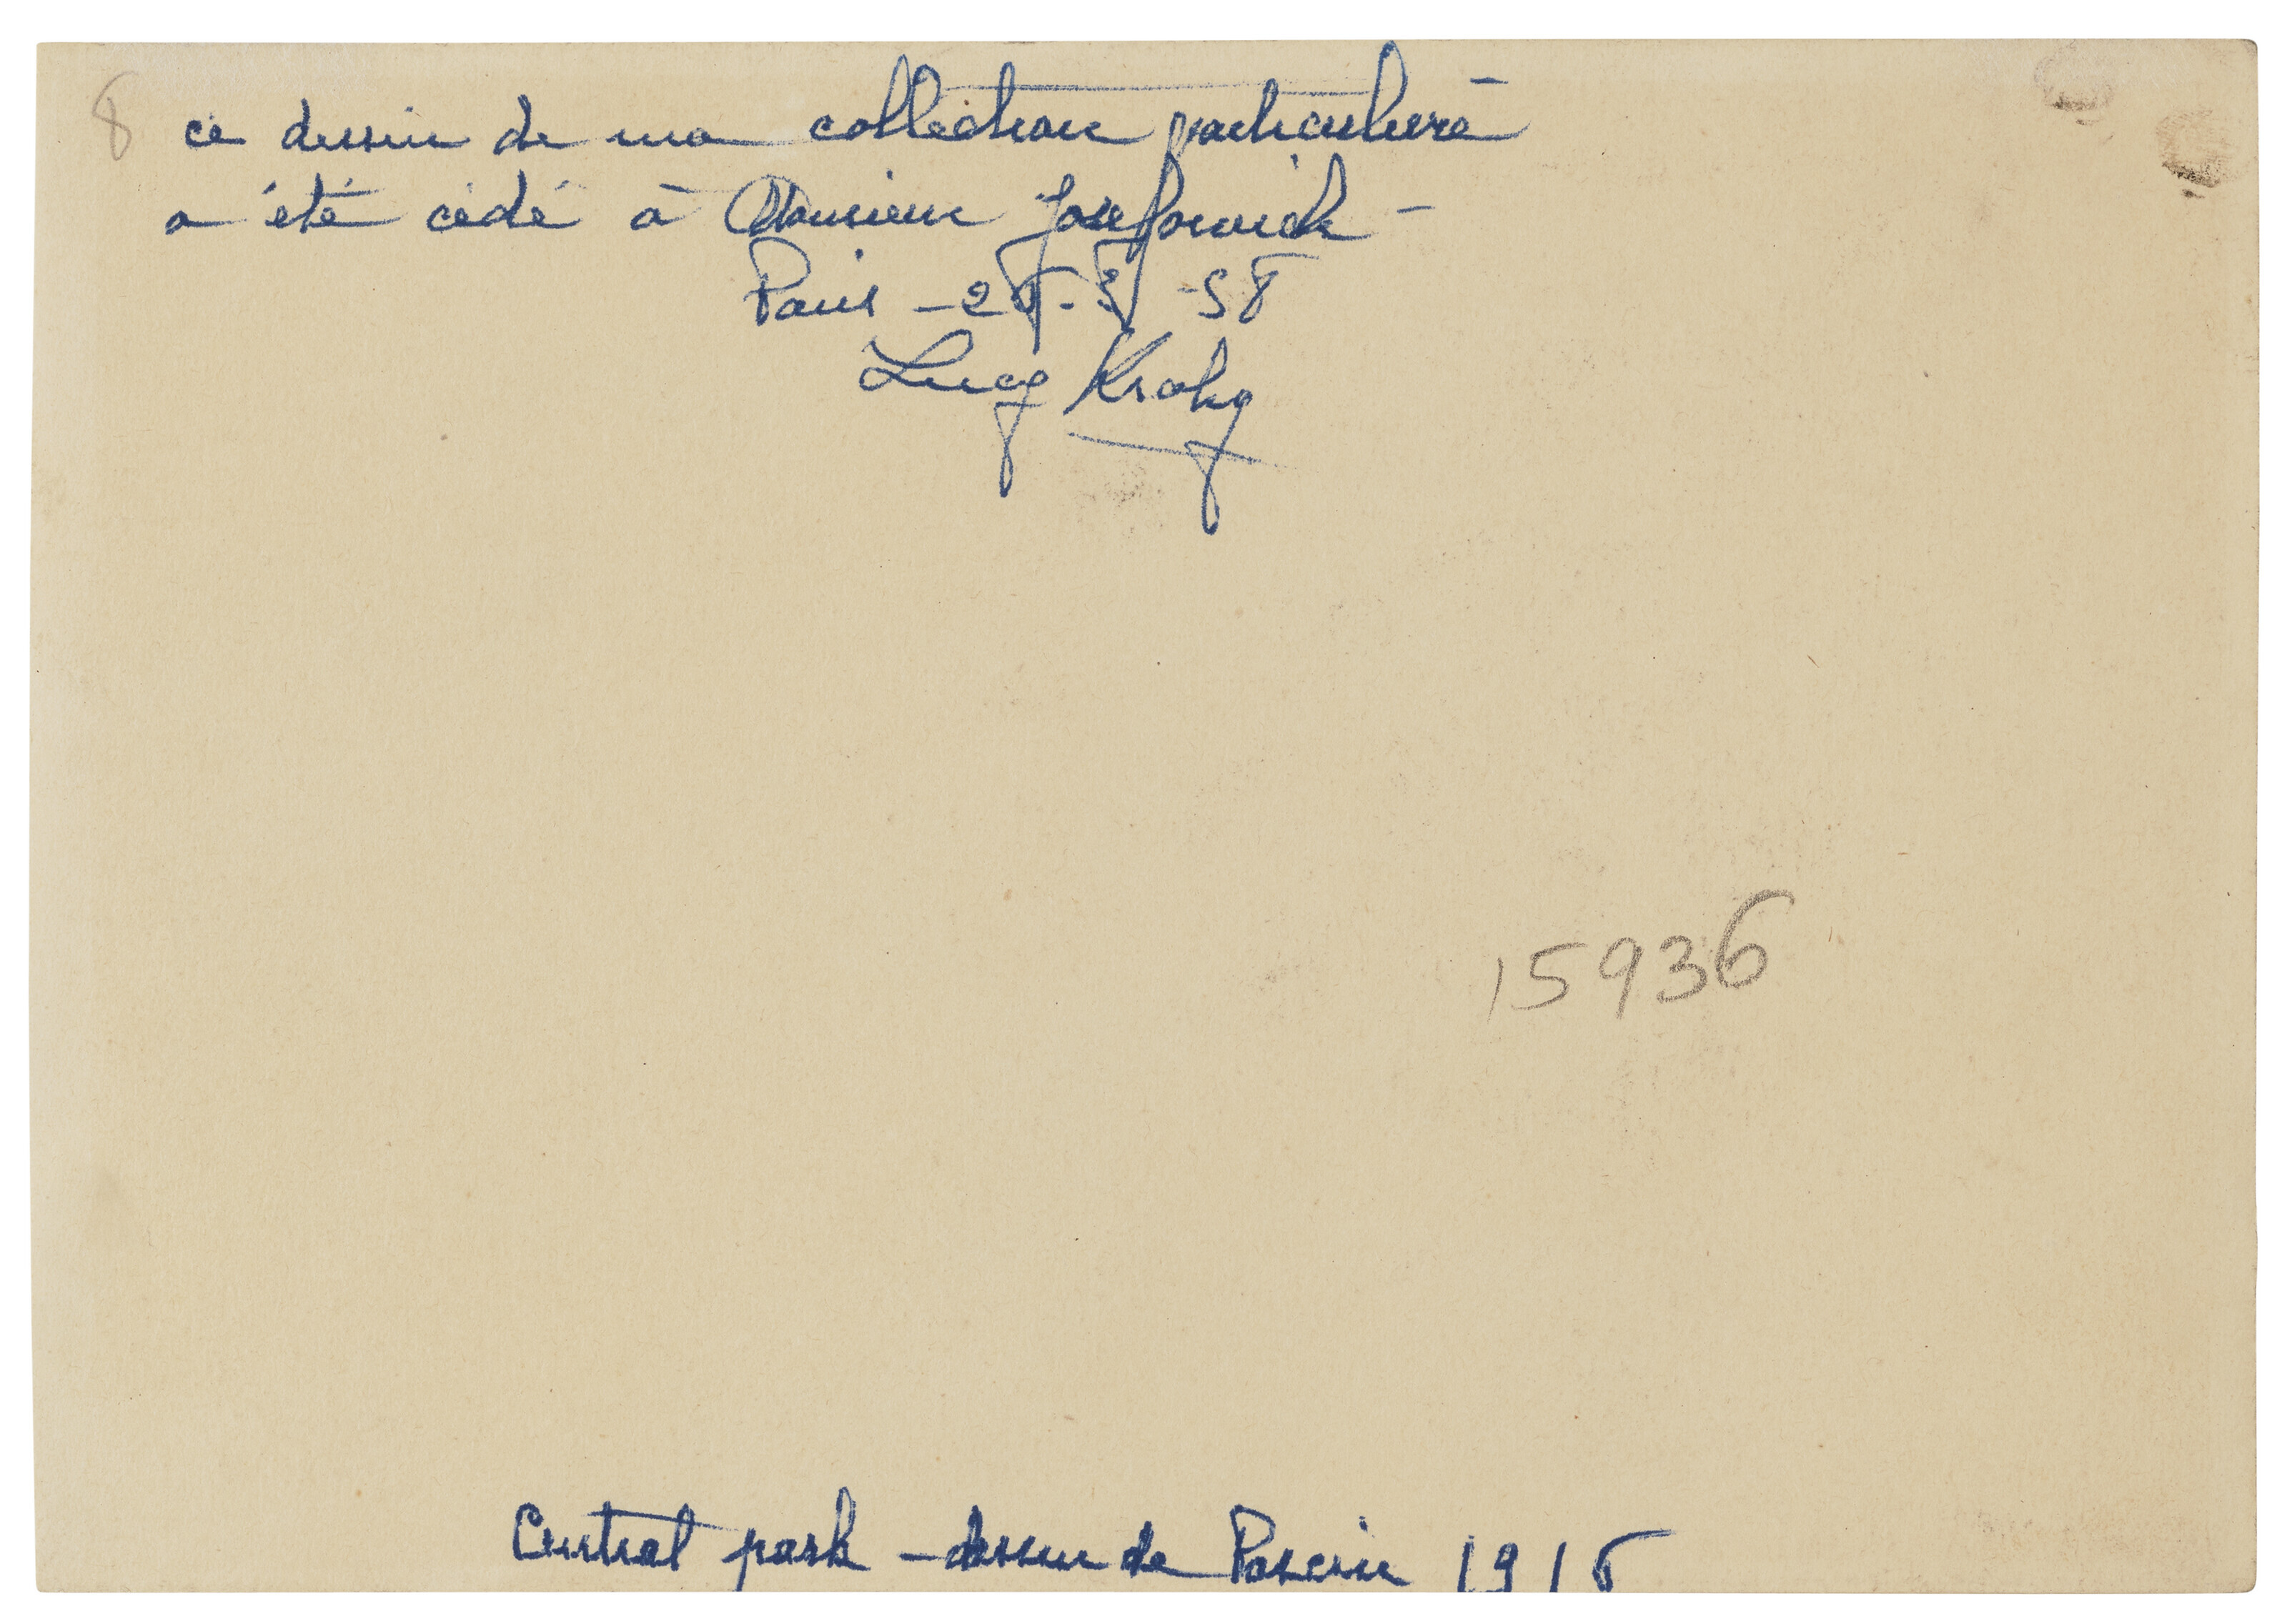 8
ce dessin de ma collection particulière
a été cédé à Monsieur Josefowich -
Paris - - 58
Lucy Krohg
15936
Central park - dessin de Pascin